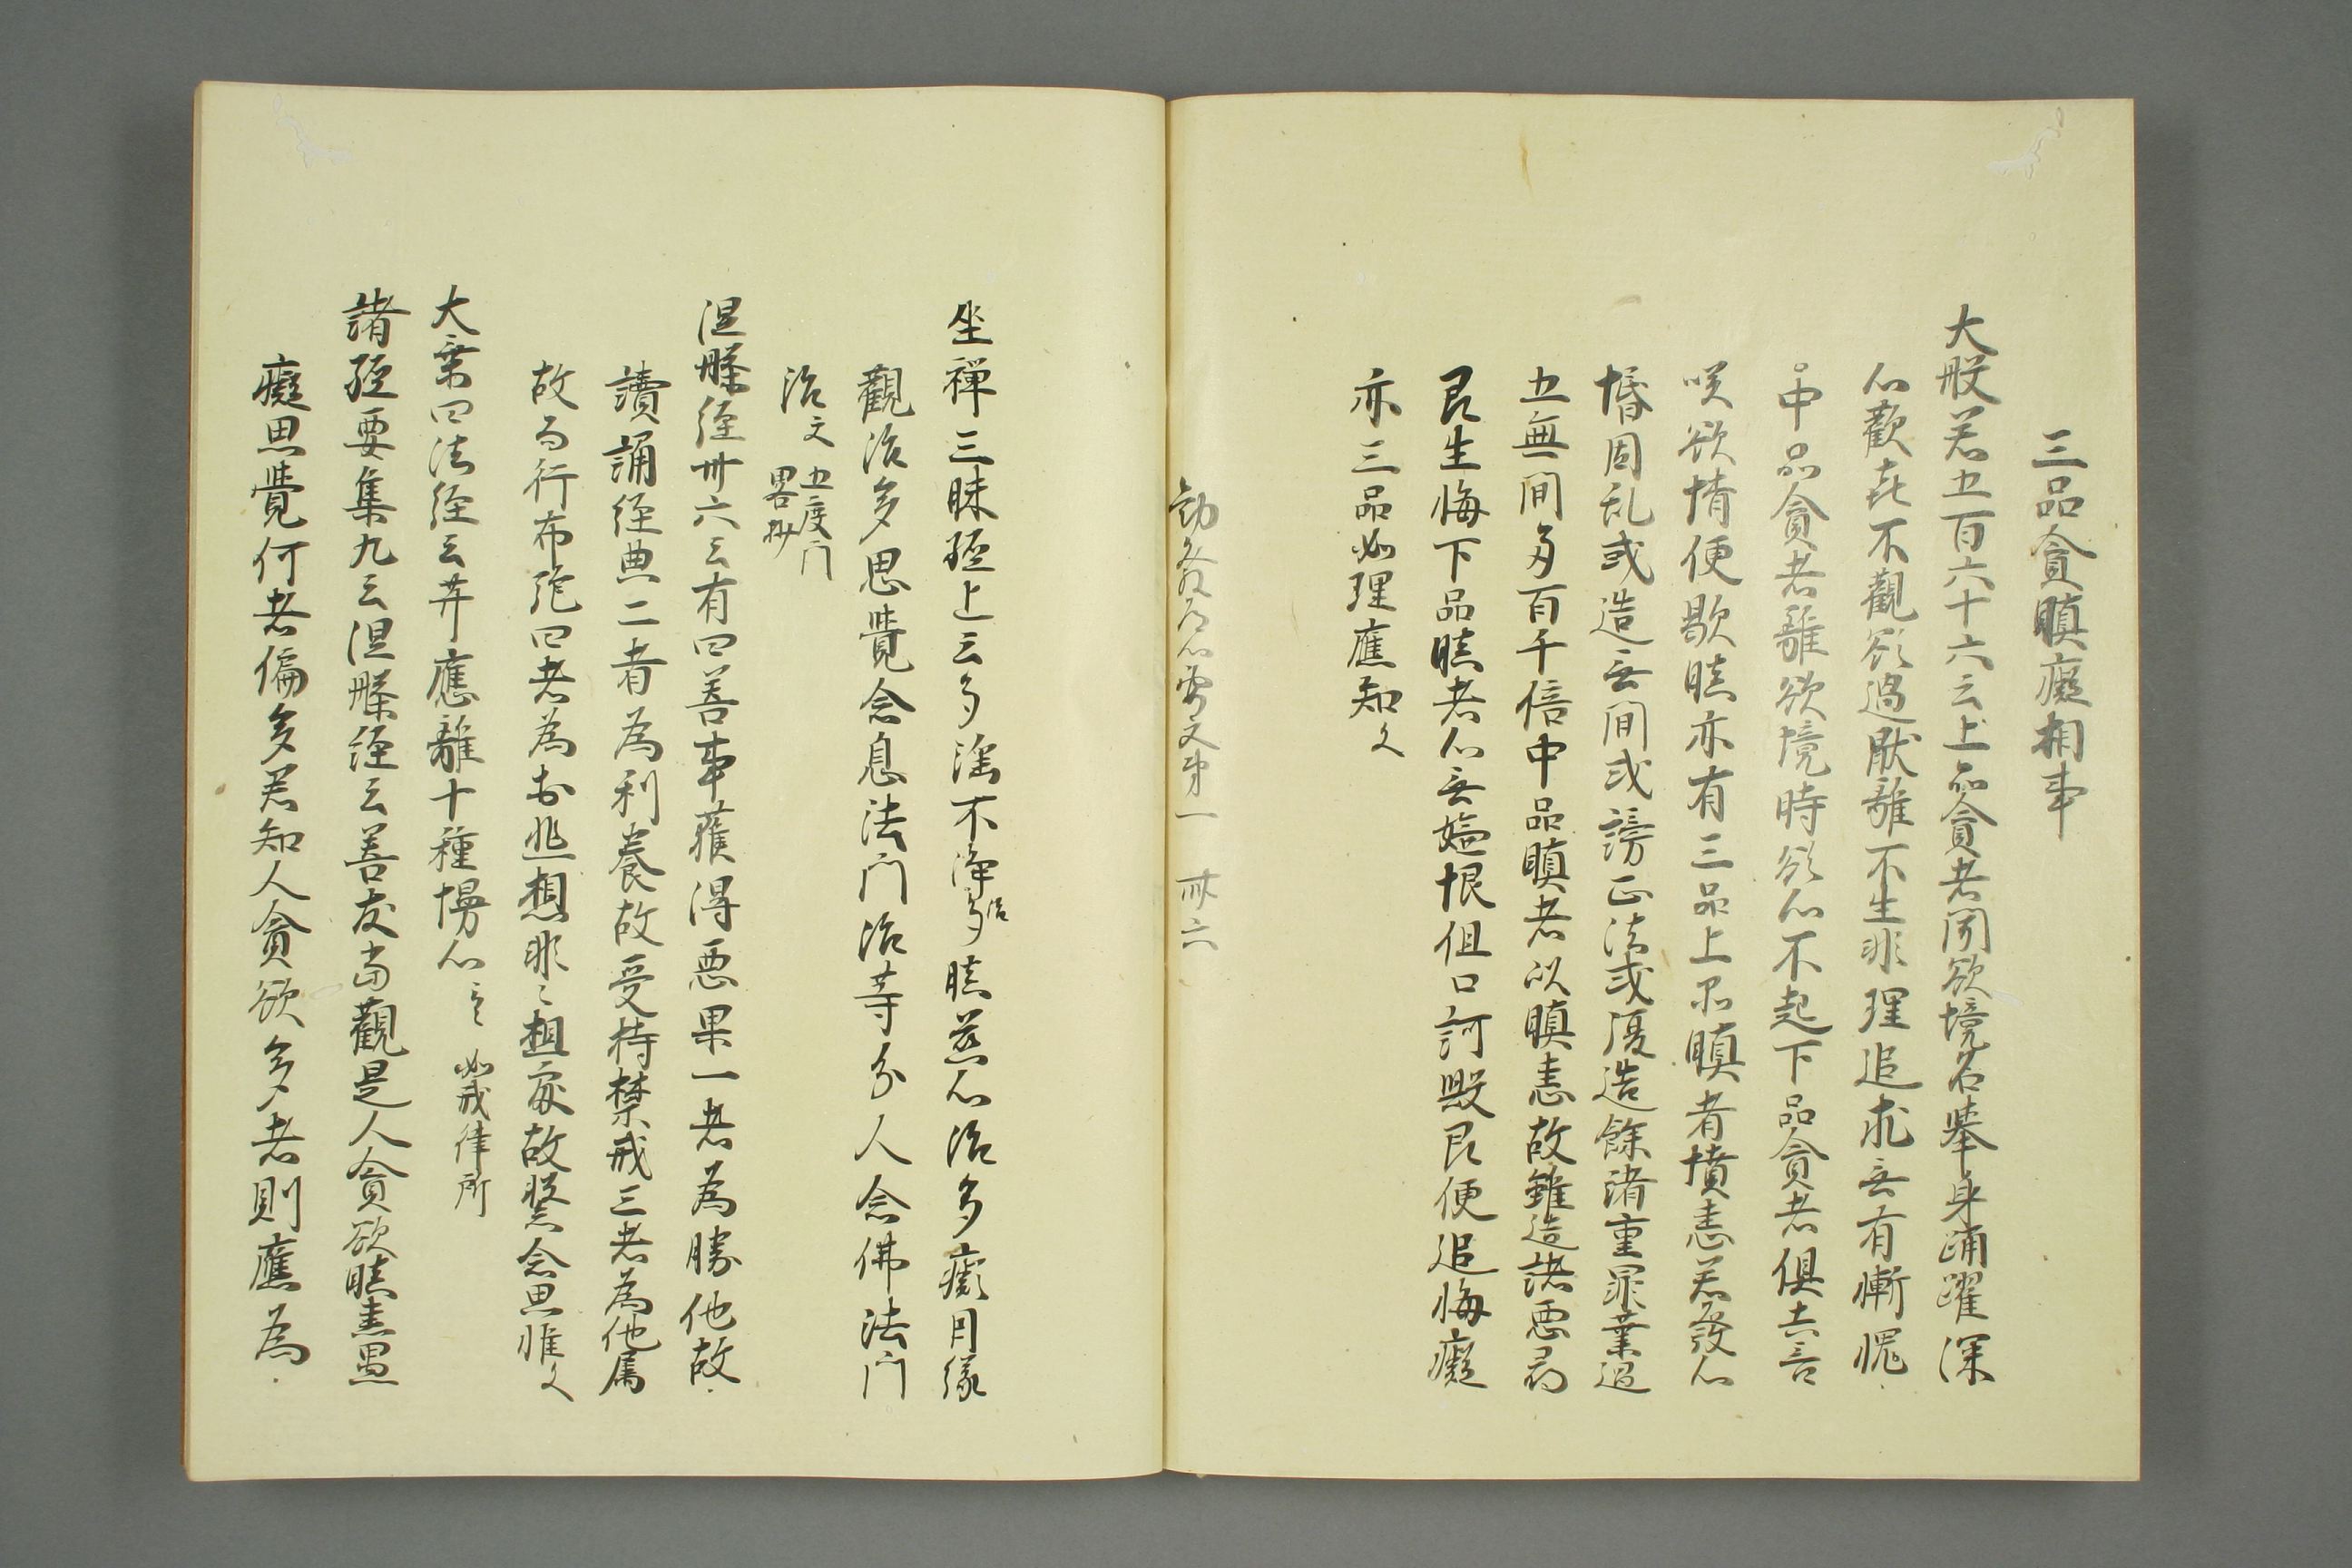 三品貪瞋癡相事
大般若五百六十六云上品貪者聞欲境名挙身踊躍深
心歡喜不觀欲過厭離不生非理追求无有慚愧
中品貪者離欲境時欲心不起下品貪者俱共言
咲欲情便歇瞋亦有三品上品瞋者憤恚若發心
惛困乱或造无間或謗正法或復造餘諸重罪業過
五無間多百千倍中品瞋者以瞋恚故雖造諸悪尋
即生悔下品瞋者心无嫌恨但口訶毀即便追悔癡
亦三品如理應知文
勸發菩提心要文第一 卅六
坐禅三昧経上云多婬不淨治多瞋慈心治多癡因縁
觀治多思覺念息法门治等分人念佛法门
治文 五度门
畧抄
涅槃経卅六云有四善事獲得悪果一者為勝他故
讀誦経典二者為利養故受持禁戒三者為他属
故而行布施四者為於非想非々想處故繋念思惟文
大乗四法経云菩應離十種慢心云々 如戒律所
諸経要集九云涅槃経云善友當觀是人貪欲瞋恚愚
癡思覺何者偏多若知人貪欲多者則應為